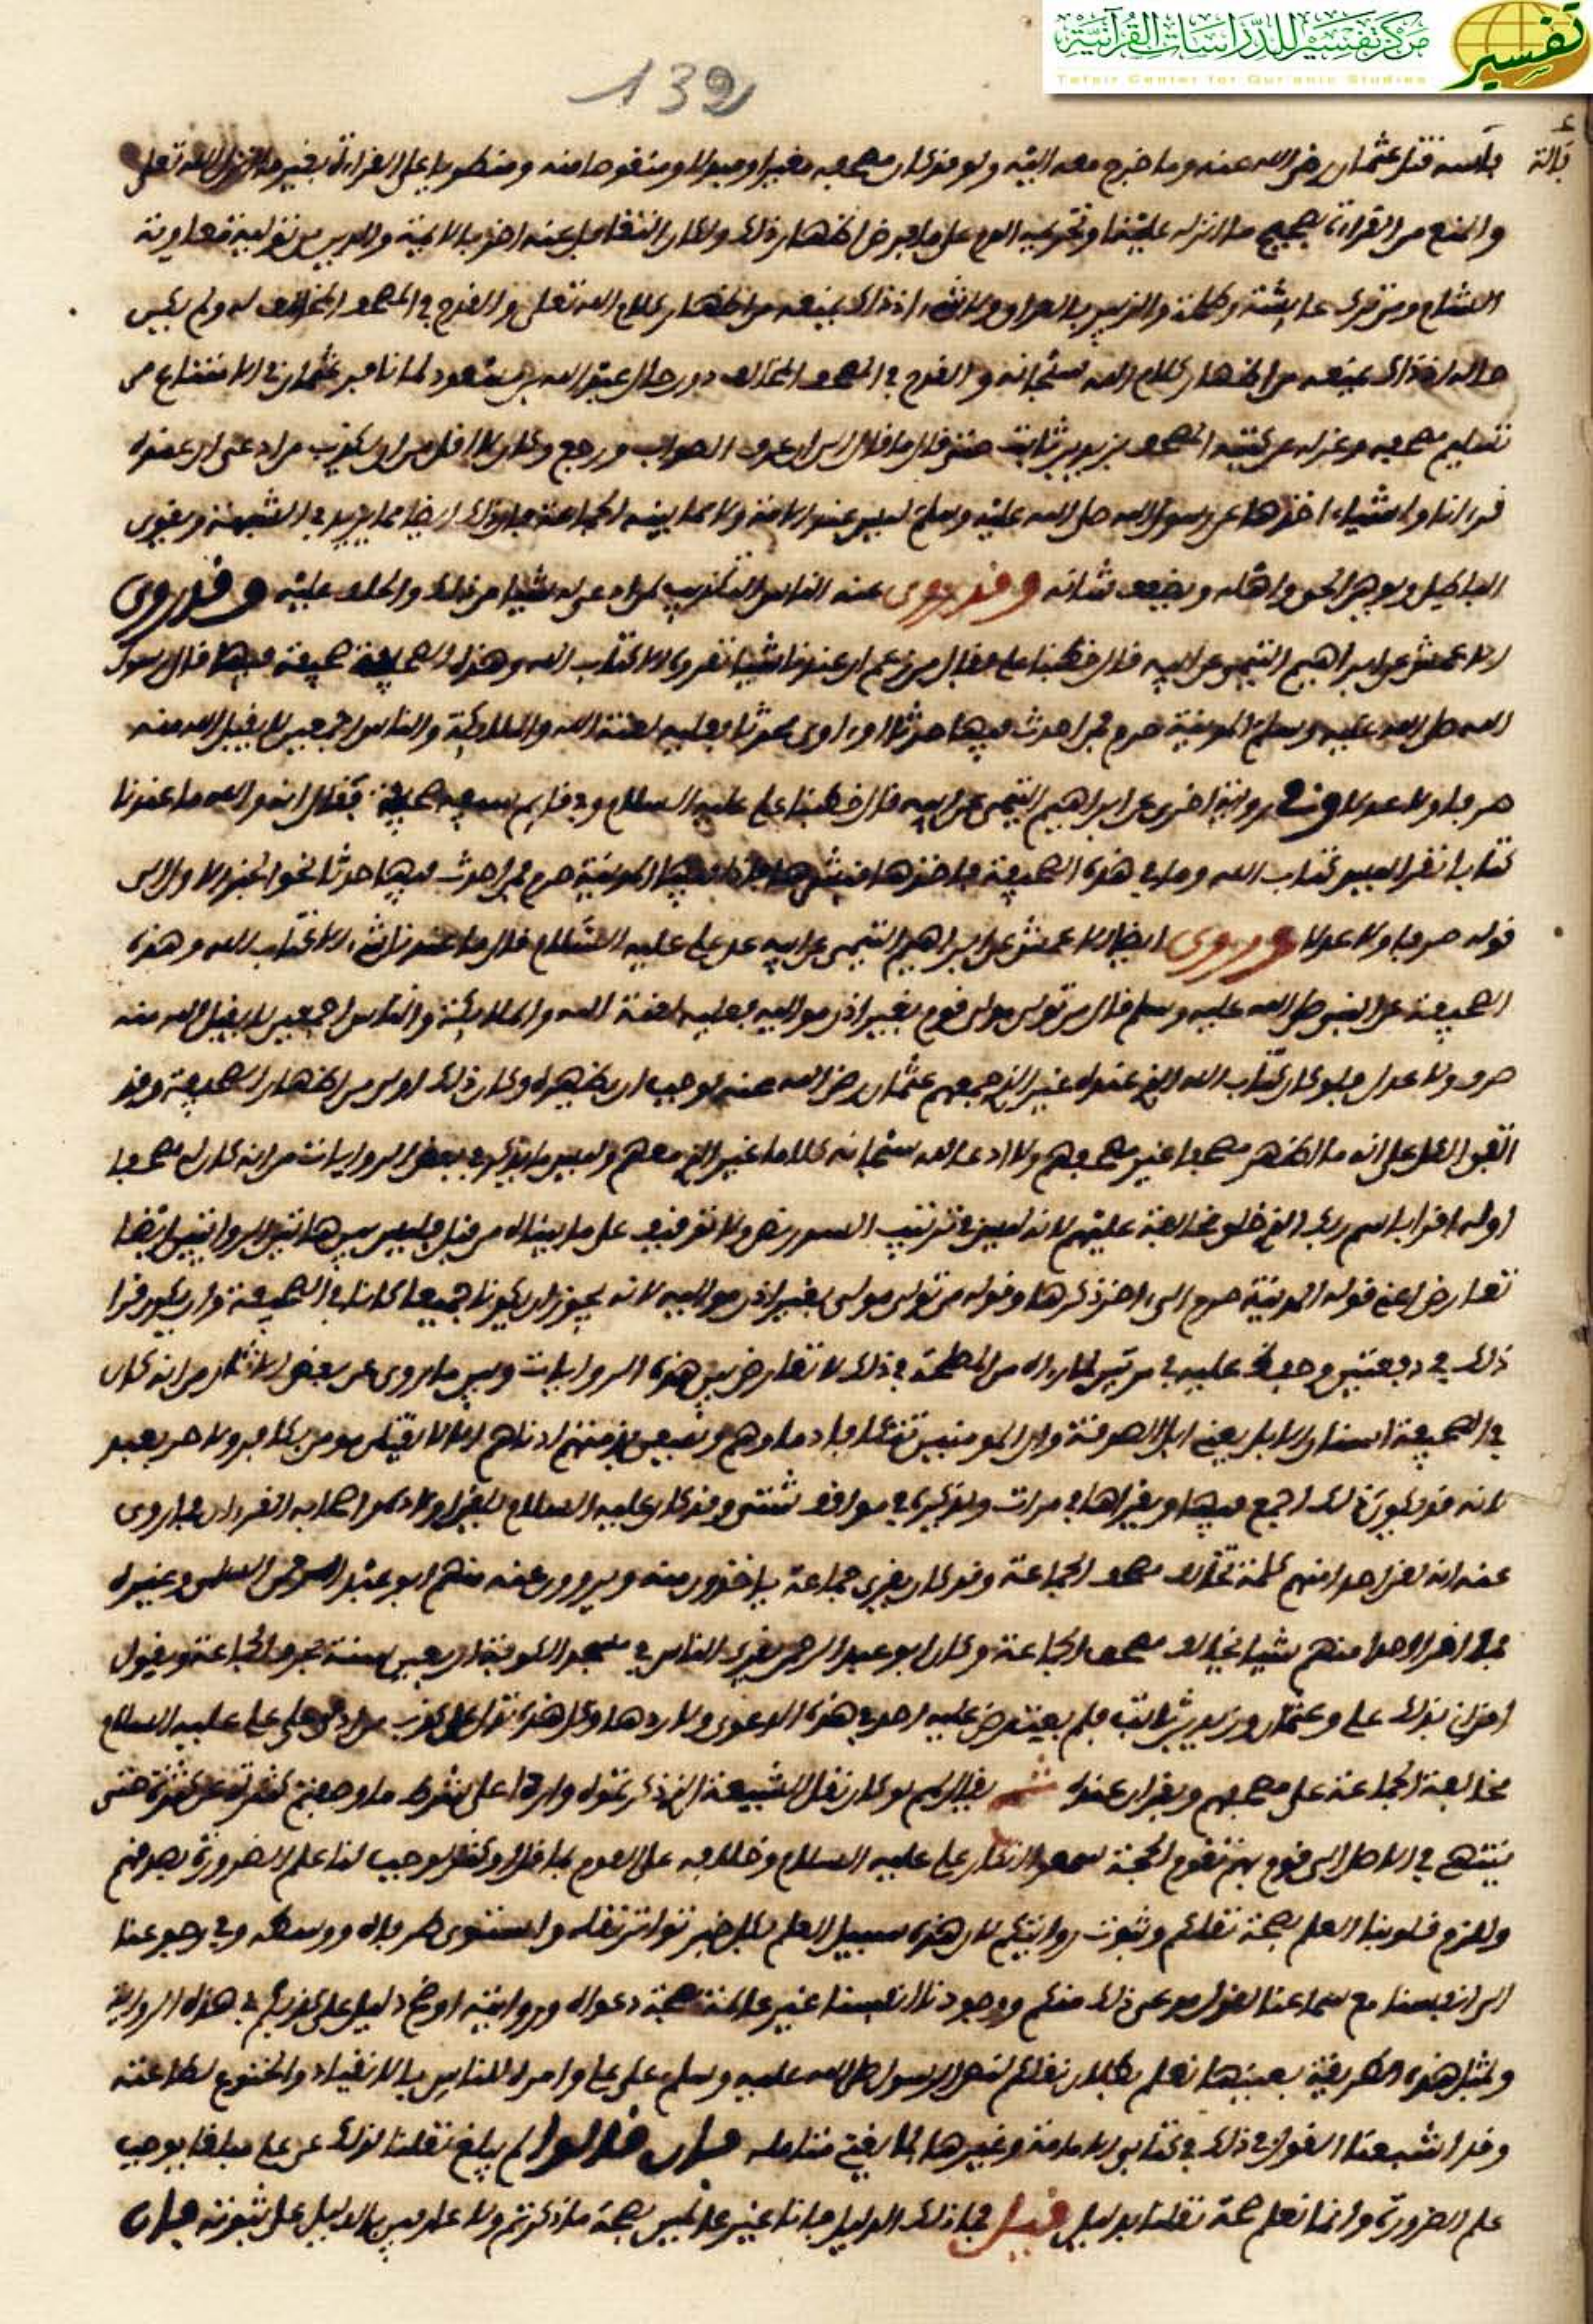 مركز تفسير للدراسات القرآنية
Tafsir Center for Qur'anic Studies
تفسير
139
قتل عثمان رضي الله عنه وما خرج معه اليه ولو قد كان مصحفه مغيرا ومبدلا ومنقوصا منه على القراءة بغير ما انزل الله تعلى
والمنع من القراءة بصحيح ما انزله علينا
الشام عايشة وطلحة والزبير بالعراق اذ ذاك يمنعه من اظهار كلام الله تعلى والقدح في المصحف المخالف له ولم يكن
حاله اذ ذاك يمنعه من اظهار كلام الله سبحانه والقدح في المصحف المخالف دون حال عبد الله بن مسعود لما نافر عثمان في الامتناع من
تسليم مصحفه وعزله عن كتبه المصحف بزيد بن ثابت حتى قال ما قال الى ان عرف الصواب ورجع وكان لا اقل من ان يكذب من ادعى ان عنده
قرءانا واشياء اخذها عن رسول الله صلى الله عليه وسلم ليس عند الامة ولا مما بينه لجماعة ايضا مما يزيد في الشبهة ويقوى
الباطل ويوهن الحق واهله ويضعف شانه وقد روى عنه الناس التكذيب لمن ادعى له شيئا من ذلك والحلف عليه وقد روى
الاعمش عن ابراهيم التيمي عن ابيه قال خطبنا علي فقال من زعم ان عندنا شيئا نقرءه الا كتاب الله وهذه الصحيفة صحيفة فيها قال رسول
الله صلى الله عليه وسلم المدينة حرم فمن احدث فيها حدثا او ءاوى محدثا فعليه لعنة الله والملائكة والناس اجمعين لا يقبل الله منه
صرفا ولا عدلا وفي رواية اخرى عن ابراهيم التيمي عن ابيه قال خطبنا علي عليه السلام صحيفة فقال انه والله ما عندنا
كتابا نقرا ليس كتاب الله وما في هذه الصحيفة فاخذها فنشرها فاذا فيها المدينة حرم فمن احدث فيها حدثا نحو الخبر الاول الى
قوله صرفا ولا عدلا وروى ايضا الاعمش عن ابراهيم التيمي عن ابيه عن علي عليه السلام قال ما عندنا شيء الا كتاب الله وهذه
الصحيفة عن النبي صلى الله عليه وسلم قال من تولى مولى قوم بغير اذن مواليه فعليه لعنة الله والملائكة والناس اجمعين لا يقبل الله منه
صرف ولا عدل فلو كان كتاب الله الذي عنده غير الذي جمعهم عثمان رضي الله عنه لوجب ان يظهره وكان ذلك اولى من اظهار الصحيفة وقد
اتفق الكل على انه ما اظهر مصحفا غير مصحفهم ولا ادعا لله سبحانه كلاما غير الذي معهم وليس ما يذكر في بعض الروايات من انه كان له مصحفا
اوله اقرا باسم ربك الذي خلق مخالفة عليهم لانه ليس في ترتيب السور نص ولا توقيف على ما بيناه من قبل فليس بين هاتين الروايتين ايضا
تعارض اعني قوله المدينة حرم الى ءاخر ذكرها وقوله من تولى مولى بغير اذن مواليه لانه يجوز ان يكونا جميعا كانا في الصحيفة وان يكون قرا
ذلك في دفعتين عليه في مرتين لما رءاه من المصلحة في ذلك لا تعارض بين هذه الروايات وبين ما روى عن بعض الاثار من انه كان
في الصحيفة اسنان الابل يعني ابل الصدقة وان المومنين تتكافا دماوهم ويسعى بذمتهم ادناهم الا لا يقتل مومن بكافر ولا حر بعبد
لانه قد يكون ذلك اجمع فيها ويقراها في مرات في مواقف شتى وقد كان عليه السلام القرءان فما روى
عنه انه لقن احدا منهم كلمة تخالف مصحف الجماعة وقد كان يقرى جماعة ياخذون منه ويروون عنه منهم ابو عبد الرحمن السلمى وغيره
فما اقرا احدا منهم شيئا يخالف مصحف الجماعة وكان ابو عبد الرحمن يقرى الناس في مسجد الكوفة اربعين سنة بحرف الجماعة ويقول
اقراني بذلك علي وعثمان وزيد بن ثابت فلم يعترض عليه احد في هذه الدعوى ولا ردها وكل هذه تدل على كذب من ادعى على علي عليه السلام
مخالفة الجماعة على مصحفهم وبقران عنده ثم يقال لهم لو كان نقل الشيعة الذي ذكرتموه واردا على شرط ما وصفتم كثرة عن كثرة حتى
ينتهي في الاصل الى قوم بهم تقوم الحجة سمعوا انكار علي عليه السلام وخلافه على القوم لوجب لنا علم الضرورة بصدقهم
ولزم قلوبنا العلم بصحة نقلكم وثبوت روايتكم لان هذه سبيل العلم بكل خبر تواتر نقله واستوى طرفاه ووسطه وفي رجوعنا
الى انفسنا مع سماعنا ذلك منكم ووجودنا انفسنا غير عالمة بصحة دعواه وروايته اوضح دليل على كذبكم في هذه الرواية
وبمثل هذه الطريقة بعينها نعلم بطلان نقلكم لنص الرسول صلى الله عليه وسلم على علي وامره للناس بالانقياد والخنوع لطاعته
وقد اشبعنا القول في ذلك في كتاب الامامة وغيرها بما يغني متامله فان قالوا لم يبلغ نقلنا لذلك عن علي مبلغا يوجب
علم الضرورة وانما نعلم صحة نقلنا بدليل قيل فما ذلك الدليل فانا غير عالمين بصحة ما ذكرتم ولا عارفين بالدليل على ثبوته فان